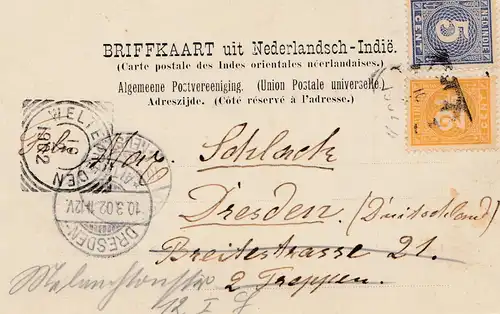 BRIEFKAART uit Nederlandsch-Indië.
(Carte postale des Indes orientales néerlandaises.)
Algemeene Postvereeniging. (Union Postale universelle.)
Adreszijde. (Côté réservé à l'adresse.)
5
CENT
CENT
WELTEVREDEN
DRESDEN-
10.3.02.11-12V.
Schlack
Dresden. (Duitschland)
Breitestrasse 21.
2 Treppen.
Melanchtonstr
12 I